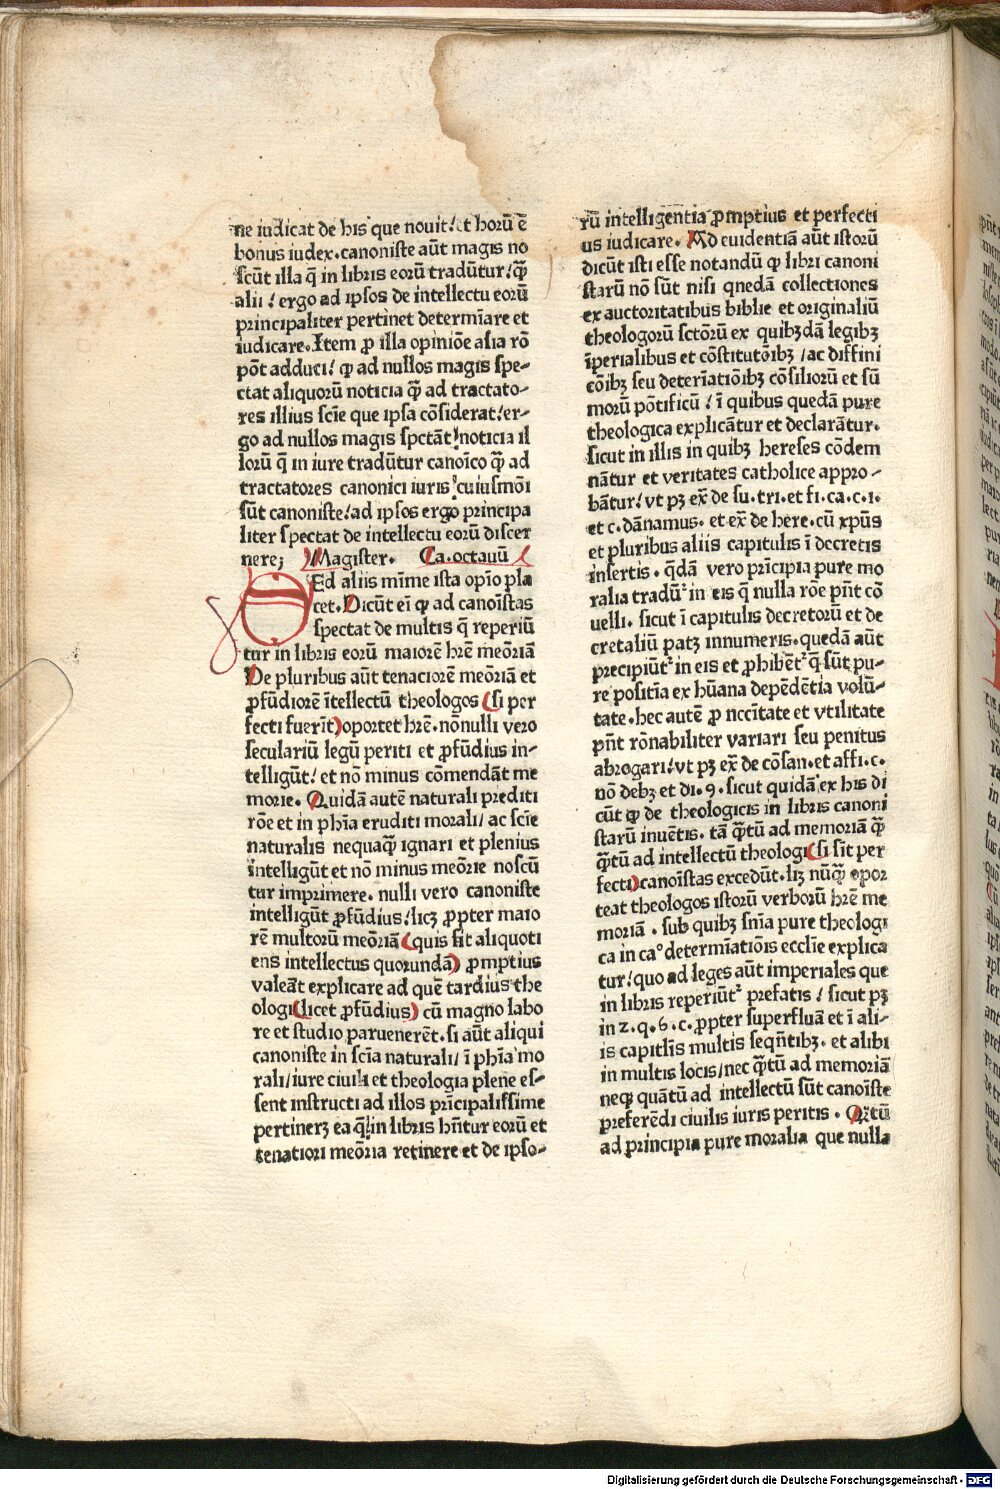 ne iudicat de his que nouit! et horū ē
bonus iudex. canoniste aūt magis no
scūt illa q̄ in libris eorū tradūtur! q̄ꝫ
alii! ergo ad ipsos de intellectu eorū
principaliter pertinet determīare et
iudicare. Item ꝓ illa opiniōe alia rō
pōt adduci! ꝙ ad nullos magis spe-
ctat aliquorū noticia q̄ꝫ ad tractato-
res illius scīe que ipsa cōsiderat! er-
go ad nullos magis spctāt noticia il
lorū q̄ in iure tradūtur canoīco q̄ꝫ ad
tractatores canonici iuris! cuiusmōi
sūt canoniste! ad ipsos ergo principa
liter spectat de intellectu eorū discer
nere; Magister. Ca. octauū
SEd aliis mīme ista opīo pla
cet. Dicūt eī ꝙ ad canoīstas
spectat de multis q̄ reperiū
tur in libris eorū maiorē hr̄e meōriā
De pluribus aūt tenaciorē meōriā et
ꝓfūdiorē ītellectū theologos (si per
fecti fuerīt) oportet hr̄e. nōnulli vero
seculariū legū periti et ꝓfūdius in-
telligūt! et nō minus cōmendāt me
morie. Quidā autē naturali prediti
rōe et in phīa eruditi morali/ ac scīe
naturalis nequaq̄ꝫ ignari et plenius
intelligūt et nō minus meōrie noscū
tur imprimere. nulli vero canoniste
intelligūt ꝓfūdius! licꝫ ꝓpter maio
rē multorū meōriā (quis sit aliquoti
ens intellectus quorundā) ꝓmptius
valeāt explicare ad quē tardius the
ologi (licet ꝓfūdius) cū magno labo
re et studio paruenerēt. si aūt aliqui
canoniste in scīa naturali/ ī phīa mo
rali/ iure ciuili et theologia plene es-
sent instructi ad illos prīcipalissime
pertinerꝫ ea q̄ in libris hn̄tur eorū et
tenatiori meōria retinere et de ipso-
rū intelligentia ꝓmptius et perfecti
us iudicare. Ad euidentiā aūt istorū
dicūt isti esse notandū ꝙ libri canoni
starū nō sūt nisi qnedā collectiones
ex auctoritatibus biblie et originaliū
theologorū sctōrū ex quibꝫdā legibꝫ
īperialibus et cōstitutōibꝫ/ ac diffini
cōibꝫ seu deteriatiōibꝫ cōsiliorū et sū
morū pōtificū! ī quibus quedā pure
theologica explicātur et declarātur.
sicut in illis in quibꝫ hereses cōdem
nātur et veritates catholice appro-
bātur! vt pꝫ ex̄ de su. tri. et fi. ca. c. i.
et c. dānamus. et ex̄ de here. cū xp̄us
et pluribus aliis capitulis ī decretis
insertis. q̄dā vero prīcipia pure mo
ralia tradūt᷑ in eis q̄ nulla rōe pn̄t cō
uelli. sicut ī capitulis decretorū et de
cretaliū patꝫ innumeris. quedā aūt
precipiūt᷑ in eis et ꝓhibēt᷑ q̄ sūt pu-
re positīa ex hūana depēdētia volū-
tate. hec autē ꝓ nccītate et vtilitate
pn̄t rōnabiliter variari seu penitus
abrogari! vt pꝫ ex̄ de cōsan. et affi. c.
nō debꝫ et di. 9. sicut quidā ex his di
cūt ꝙ de theologicis in libris canoni
starū inuētis. tā q̄tū ad memoriā q̄ꝫ
q̄tū ad intellectū theologi (si sīt per
fecti) canoīstas excedūt. liꝫ nūq̄ꝫ opor
teat theologos istorū verborū hr̄e me
moriā. sub quibꝫ snīa pure theologi
ca in caº determīatiōis ecclīe explica
tur! quo ad leges aūt imperiales que
in libris reperiūt᷑ prefatis! sicut pꝫ
in 2. q. 6. c. ꝓpter superfluā et ī ali-
is capitl̄is multis seqn̄tibꝫ. et alibi
in multis locis/ nec q̄tū ad memoriā
neqꝫ quātū ad intellectū sūt canoīste
preferēdi ciuilis iuris peritis. Qꝫtū
ad principia pure moralia que nulla
Digitalisierung gefördert durch die Deutsche Forschungsgemeinschaft - DFG